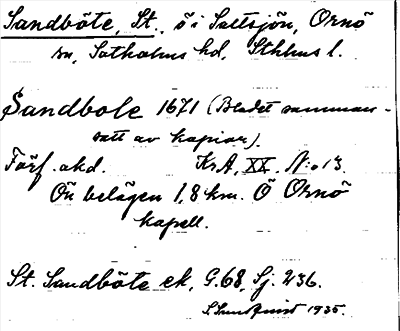 Sandböte, St., ö i Saltsjön, Ornö
sn, Sotholms hd, Sthlms l.
Sandbole 1671 (Bladet samman-
satt av kopior).
Förf. okd. KrA, XX. N:o 13.
Ön belägen 1,8 km. Ö Ornö
kapell.
St. Sandböte ek, G.68, Sj. 236.
1935.